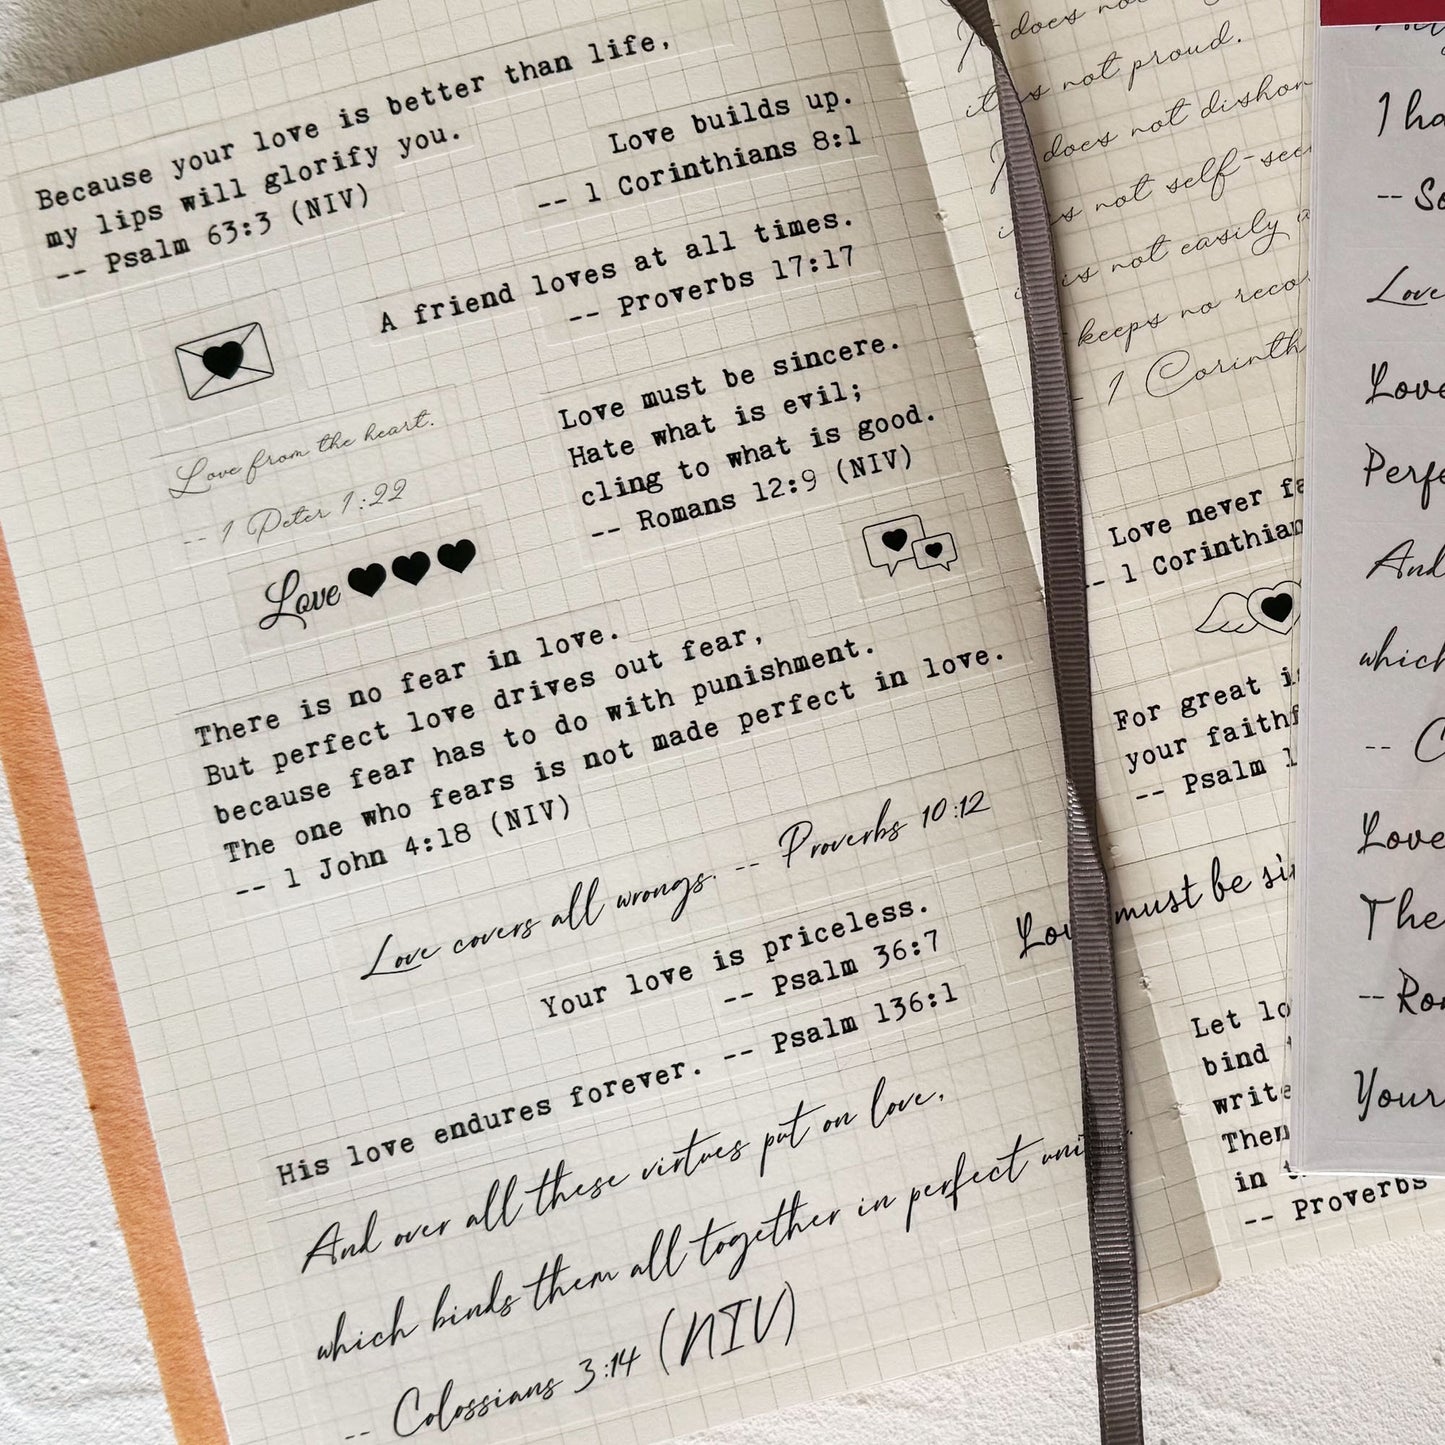 Because your love is better than life,
my lips will glorify you.
-- Psalm 63:3 (NIV)
Love builds up.
-- 1 Corinthians 8:1
A friend loves at all times.
-- Proverbs 17:17
Love from the heart.
-- 1 Peter 1:22
Love must be sincere.
Hate what is evil;
cling to what is good.
-- Romans 12:9 (NIV)
Love
There is no fear in love.
But perfect love drives out fear,
because fear has to do with punishment.
The one who fears is not made perfect in love.
-- 1 John 4:18 (NIV)
Love covers all wrongs. -- Proverbs 10:12
Your love is priceless.
-- Psalm 36:7
His love endures forever. -- Psalm 136:1
And over all these virtues put on love,
which binds them all together in perfect
-- Colossians 3:14 (NIV)
It does
it is not proud.
does not
is not
is not easily
keeps no
-- 1
Love never
-- 1
For great
your
-- Psalm
must be
Let
bind
in
-- Proverbs
I
--
Love
Love
And
which
--
Love
--